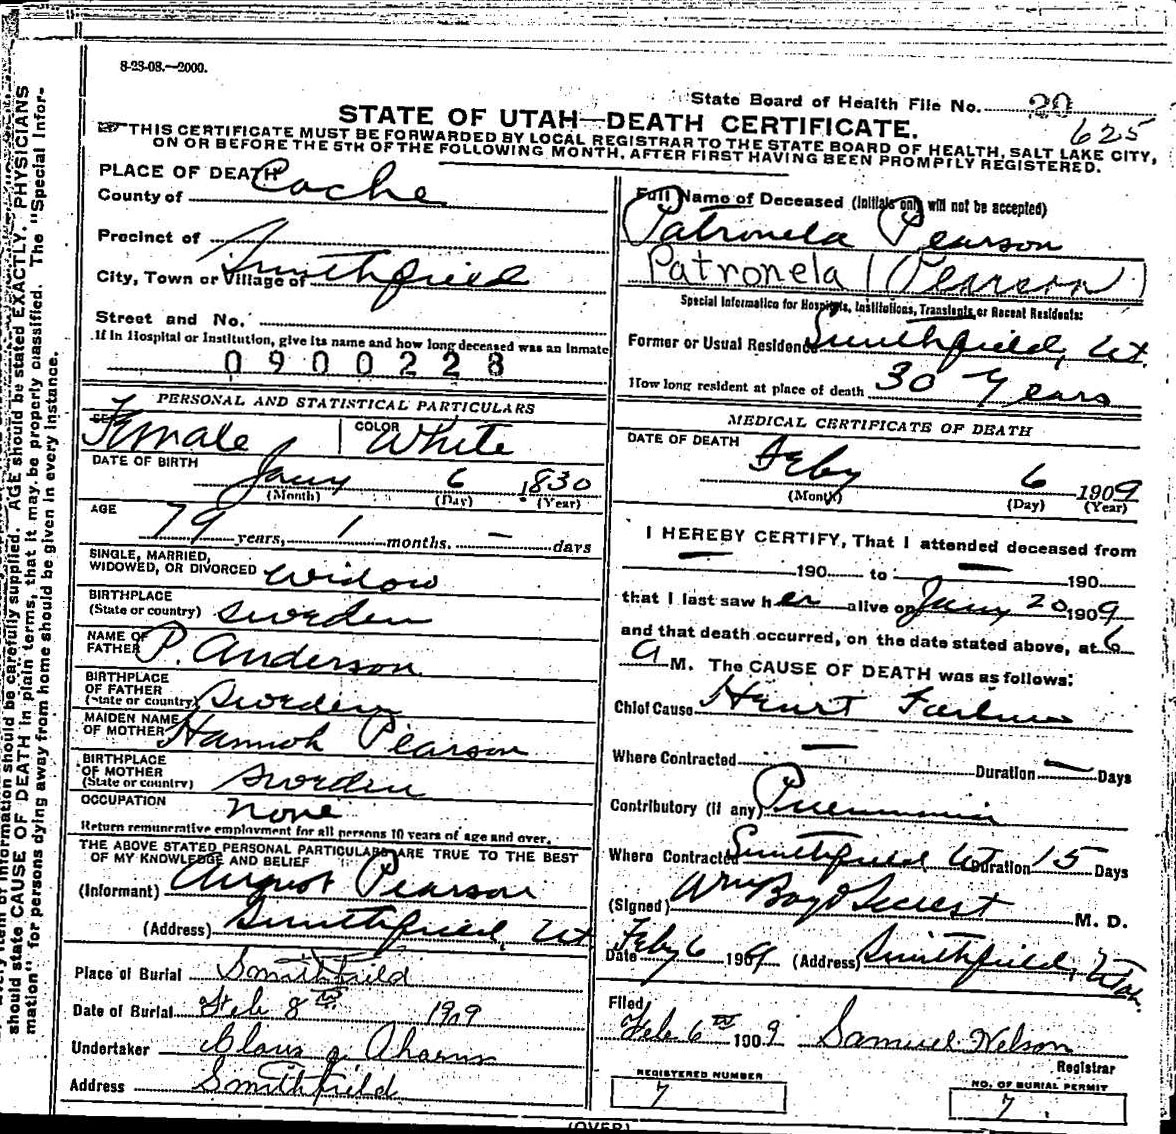 8-23-08.—2000.
State Board of Health File No. 20
625
STATE OF UTAH—DEATH CERTIFICATE.
THIS CERTIFICATE MUST BE FORWARDED BY LOCAL REGISTRAR TO THE STATE BOARD OF HEALTH, SALT LAKE CITY,
ON OR BEFORE THE 5TH OF THE FOLLOWING MONTH, AFTER FIRST HAVING BEEN PROMPTLY REGISTERED.
PLACE OF DEATH
County of Cache
Precinct of
City, Town or Village of Smithfield
Street and No.
If in Hospital or Institution, give its name and how long deceased was an inmate
0900228
PERSONAL AND STATISTICAL PARTICULARS
SEX Female COLOR White
DATE OF BIRTH Jany 6 1830
(Month) (Day) (Year)
AGE 79 years, 1 months. — days
SINGLE, MARRIED,
WIDOWED, OR DIVORCED Widow
BIRTHPLACE
(State or country) Sweden
NAME OF
FATHER P. Anderson
BIRTHPLACE
OF FATHER
(State or country) Sweden
MAIDEN NAME
OF MOTHER Hannah Pearson
BIRTHPLACE
OF MOTHER
(State or country) Sweden
OCCUPATION None
Return remunerative employment for all persons 10 years of age and over.
THE ABOVE STATED PERSONAL PARTICULARS ARE TRUE TO THE BEST
OF MY KNOWLEDGE AND BELIEF
(Informant) August Pearson
(Address) Smithfield, Ut
Place of Burial Smithfield
Date of Burial Feb 8th 1909
Undertaker Claus
Address Smithfield
Full Name of Deceased (Initials only will not be accepted)
Patronela Pearson
Patronela (Pearson)
Special Information for Hospitals, Institutions, Transients, or Recent Residents:
Former or Usual Residence Smithfield, Ut.
How long resident at place of death 30 Years
MEDICAL CERTIFICATE OF DEATH
DATE OF DEATH Feby 6 1909
(Month) (Day) (Year)
I HEREBY CERTIFY, That I attended deceased from
— 190 to — 190
that I last saw her alive on Jany 20 1909
and that death occurred, on the date stated above, at 6
A M. The CAUSE OF DEATH was as follows:
Chief Cause Heart Failure
Where Contracted — Duration — Days
Contributory (if any) Pneumonia
Where Contracted Smithfield Ut Duration 15 Days
(Signed) Wm Boyd Secrest M. D.
Date Feby 6 1909 (Address) Smithfield, Utah
Filed
Feb 6th 1909 Samuel Nelson
Registrar
REGISTERED NUMBER
7
NO. OF BURIAL PERMIT
7
(OVER)
should state CAUSE OF DEATH in plain terms, that it may be properly classified. The "Special Infor-
mation" for persons dying away from home should be given in every instance.